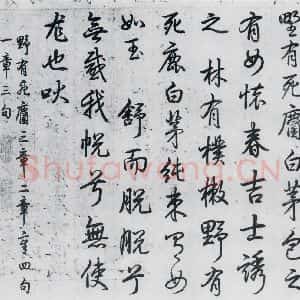 野有死麕白茅包之
有女懷春吉士誘
之林有樸樕野有
死鹿白茅純束有女
如玉 舒而脱脱兮
無感我帨兮無使
尨也吠
野有死麕三章二章章四句
一章三句
Shufawang.CN